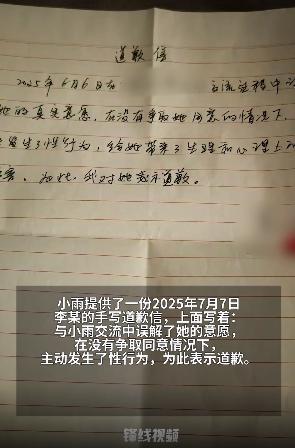 道歉信
2025年6月6日在 交流过程中误
她的真实意愿，在没有争取她同意的情况下，
发生了性行为，给她带来了生理和心理上的
害，为此，我对她表示道歉。
小雨提供了一份2025年7月7日
李某的手写道歉信，上面写着：
与小雨交流中误解了她的意愿，
在没有争取同意情况下，
主动发生了性行为，为此表示道歉。
锋线视频